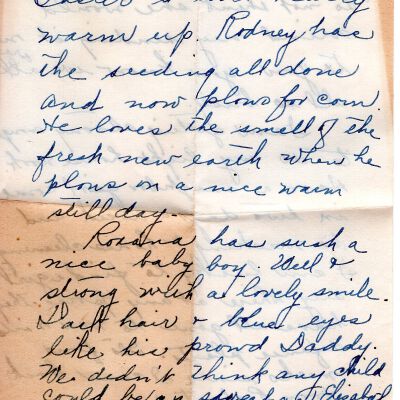 warm up. Rodney has
the seeding all done
and now plows for corn.
He loves the smell of the
fresh new earth when he
plows on a nice warm
still day.
Roxana has such a
nice baby boy. Well &
strong with a lovely smile.
Dark hair & blue eyes
like his prowd Daddy.
We didn't think any child
could be as